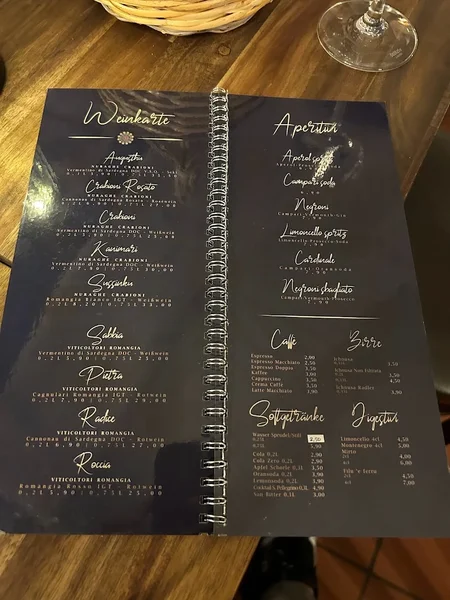 Weinkarte
NURAGHE CRABIONI
Crabioni Rosato
NURAGHE CRABIONI
Cannonau di Sardegna Rosato - Roséwein
Crabioni
NURAGHE CRABIONI
Vermentino di Sardegna DOC - Weißwein
Kanimari
NURAGHE CRABIONI
Vermentino di Sardegna DOC - Weißwein
Sussinku
NURAGHE CRABIONI
Romangia Bianco IGT - Weißwein
Sabbia
VITICOLTORI ROMANGIA
Vermentino di Sardegna DOC - Weißwein
Pietra
VITICOLTORI ROMANGIA
Cagnulari Romangia IGT - Rotwein
0,2l 7,90 | 0,75l 29,00
Radice
VITICOLTORI ROMANGIA
Cannonau di Sardegna DOC - Rotwein
0,2l 6,90 | 0,75l 27,00
Roccia
VITICOLTORI ROMANGIA
Romangia Rosso IGT - Rotwein
0,2l 5,90 | 0,75l 23,00
Aperitivi
Aperol spritz
Campari soda
Negroni
Campari-Vermouth-Gin
Limoncello spritz
Limoncello-Prosecco-Soda
Cardinale
Negroni sbagliato
Campari-Vermouth-Prosecco
Caffè
Espresso 2,00
Espresso Macchiato 2,50
Espresso Doppio 3,50
Kaffee 3,00
Cappuccino 3,50
Crema Caffè 3,50
Latte Macchiato 3,90
Birre
Ichnusa
3,50
Ichnusa Non Filtrata
4,50
Ichnusa Radler
3,90
Softgetränke
Wasser Sprudel/Still
0,25l 2,50
0,75l 5,90
Cola 0,2l 2,90
Cola Zero 0,2l 2,90
Apfel Schorle 0,2l 3,50
Oransoda 0,2l 3,90
Lemonsoda 0,2l 3,90
Cocktail S. Pellegrino 0,1l 4,90
San Bitter 0,1l 3,00
Digestiv
Limoncello 4cl 4,50
Montenegro 4cl 5,00
Mirto
2cl 4,00
4cl 6,00
Filu 'e ferru
2cl 4,50
4cl 7,00